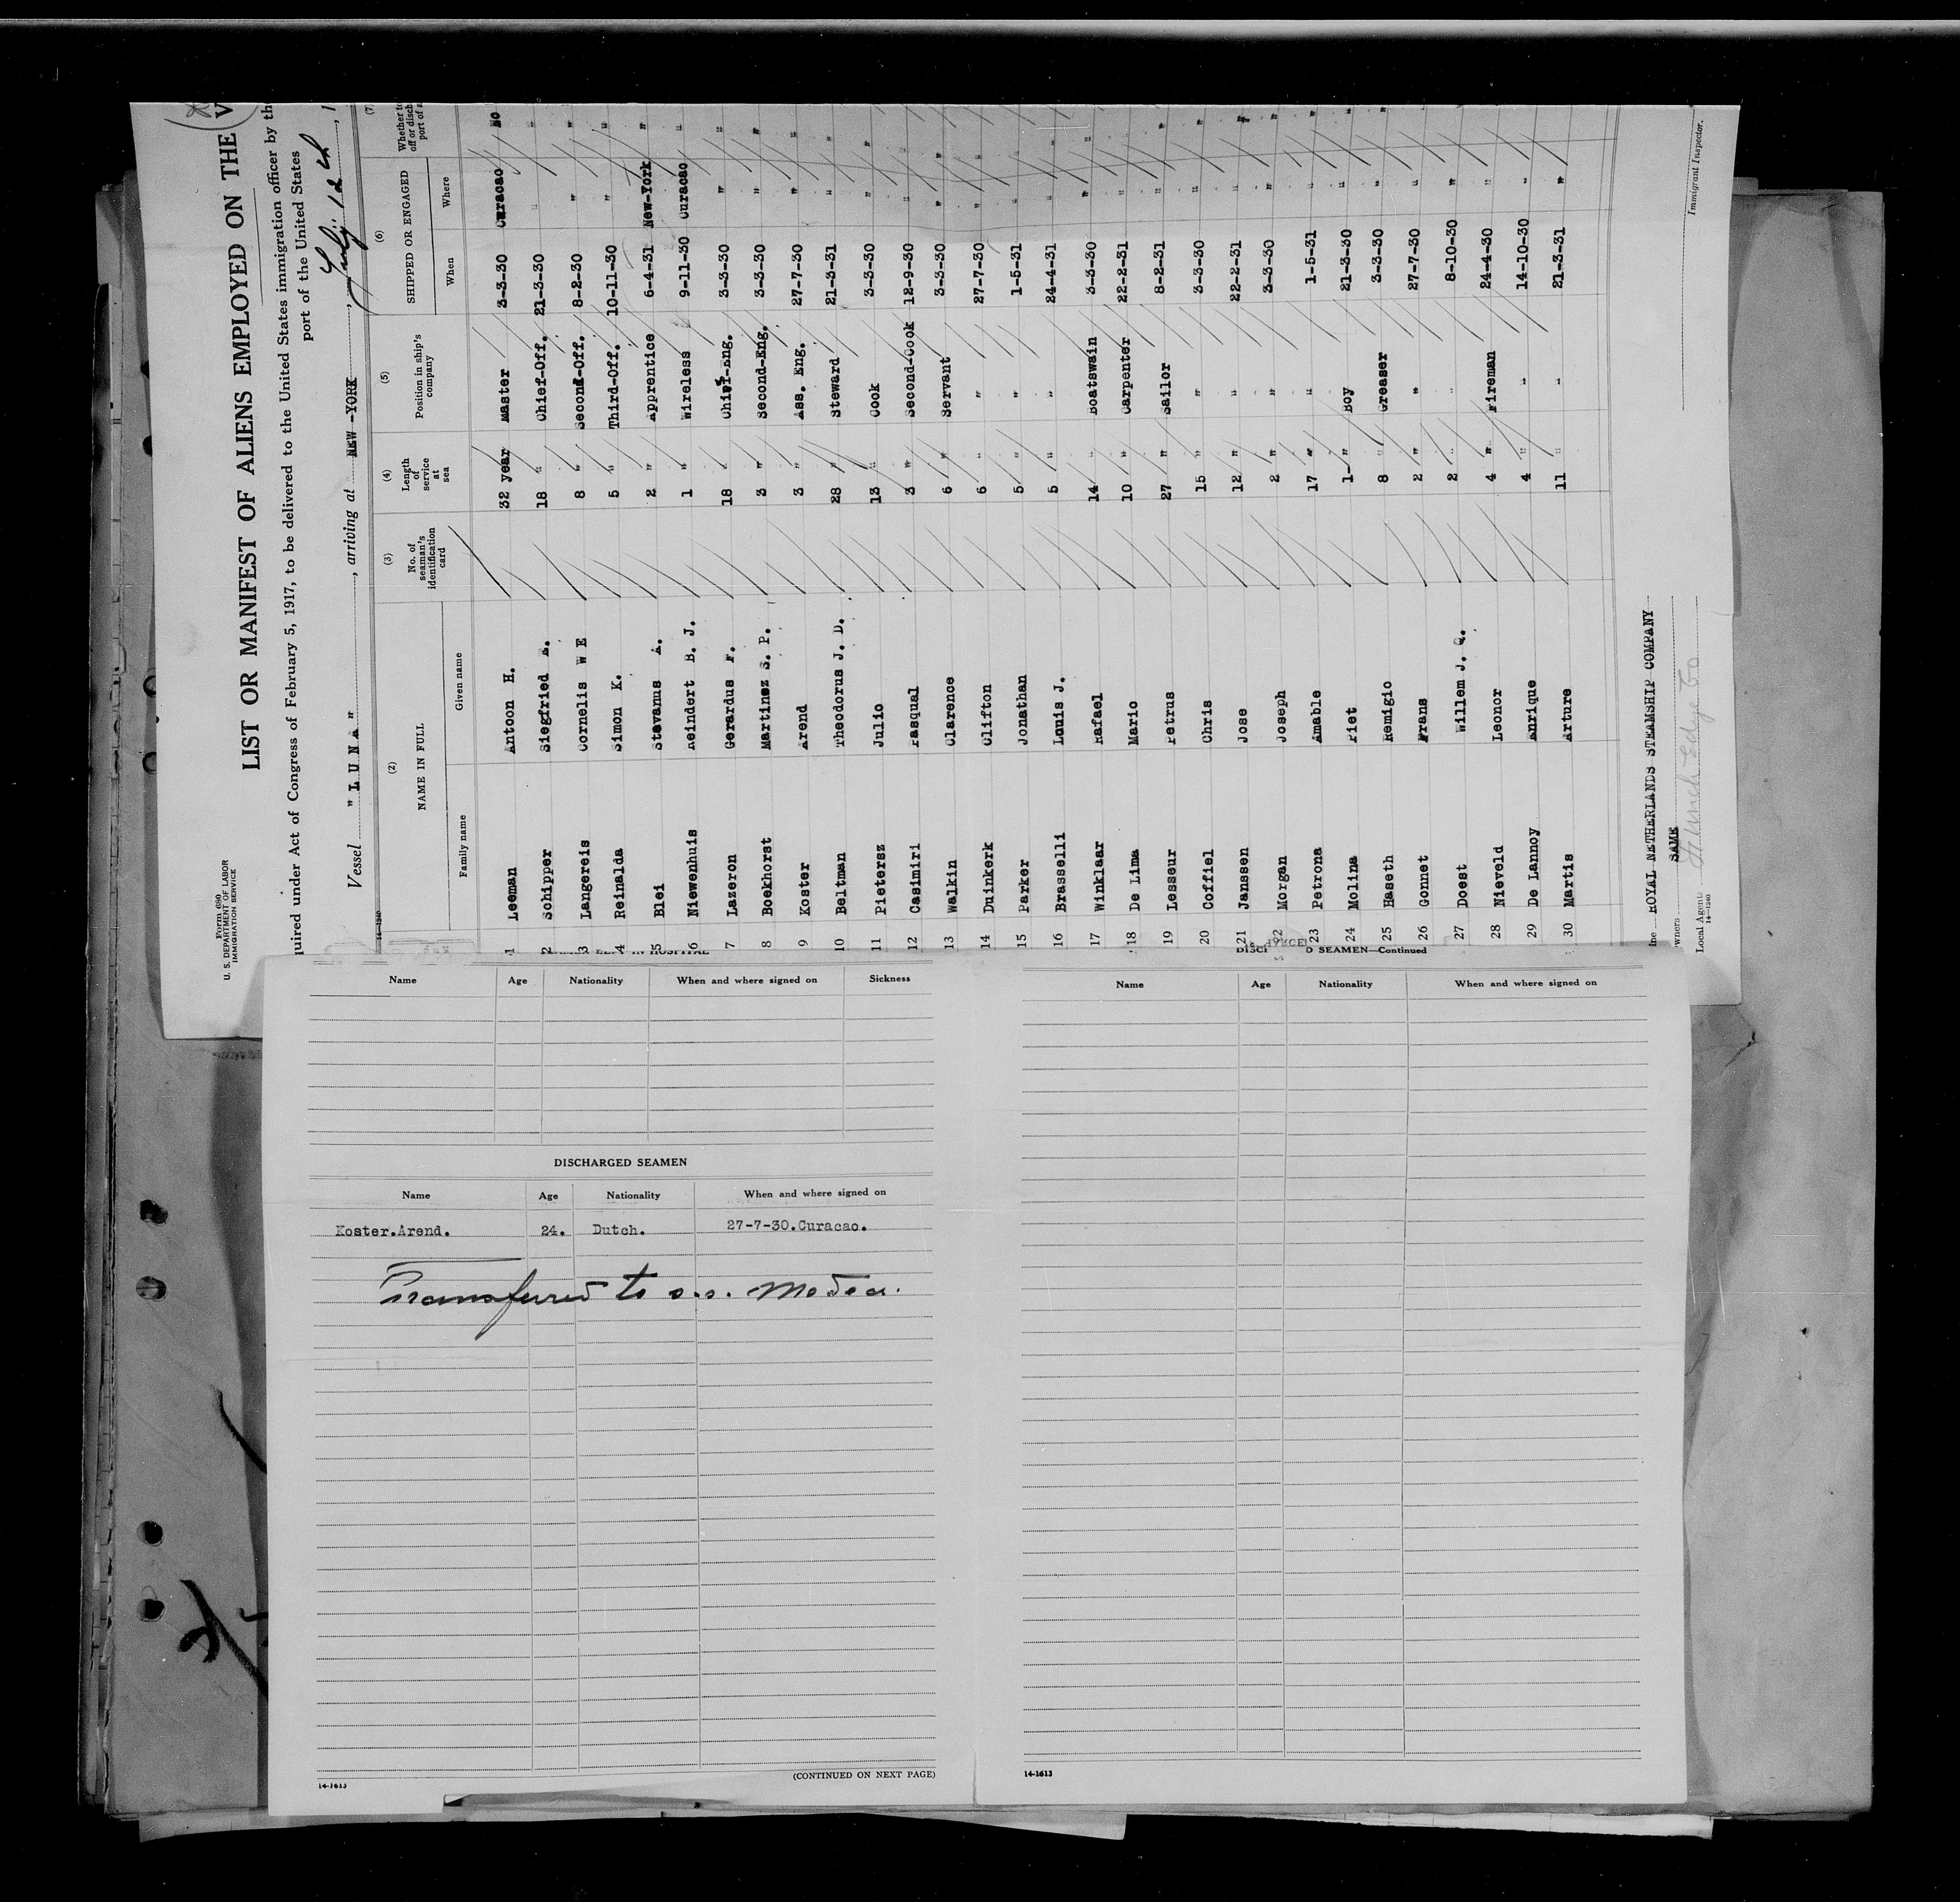 Form 680
U. S. DEPARTMENT OF LABOR
IMMIGRATION SERVICE
LIST OR MANIFEST OF ALIENS EMPLOYED ON THE
quired under Act of Congress of February 5, 1917, to be delivered to the United States immigration officer by the
port of the United States
Vessel " L U N A " , arriving at NEW -YORK , July 12th , 1
(2) (3) (4) (5) (6) (7)
NAME IN FULL No. of seaman's identification card Length of service at sea Position in ship's company SHIPPED OR ENGAGED
Family name Given name When Where
1 Leeman Antoon H. 32 year Master 3-3-30 Curacao No
2 Schipper Siegfried 18 " Chief-Off. 21-3-30 " "
3 Langereis Cornelis W E 8 " Second-Off. 8-2-30 " "
4 Reinalda Simon K. 5 " Third-Off. 10-11-30 " "
5 Blei Stevanus A. 2 " Apprentice 6-4-31 New-York "
6 Niewenhuis Reindert B. J. 1 " Wireless 9-11-30 Curacao "
7 Lazeron Gerardus F. 18 Chief-Eng. 3-3-30 " "
8 Boekhorst Martinez S. P. 3 " Second-Eng. 3-3-30 " "
9 Koster Arend 3 " Ass. Eng. 27-7-30 " "
10 Beltman Theodorus J. D. 28 " Steward 21-3-31 " "
11 Pietersz Julio 13 " Cook 3-3-30 " "
12 Casimiri Pasqual 3 " Second-Cook 12-9-30 " "
13 Walkin Clarence 6 " Servant 3-3-30 " "
14 Duinkerk Clifton 6 " " 27-7-30 " "
15 Parker Jonathan 5 " " 1-5-31 " "
16 Brasselli Louis J. 5 " " 24-4-31 " "
17 Winklaar Rafael 14 " Boatswain 3-3-30 " "
18 De Lima Mario 10 " Carpenter 22-2-31 " "
19 Lesseur Petrus 27 " Sailor 8-2-31 " "
20 Coffiel Chris 15 " " 3-3-30 " "
21 Janssen Jose 12 " " 22-2-31 " "
22 Morgan Joseph 2 " " 3-3-30 " "
23 Petrona Amable 17 " " 1-5-31 " "
24 Molina Piet 1- " Boy 21-3-30 " "
25 Haseth Remigio 8 " Greaser 3-3-30 " "
26 Gonnet Frans 2 " " 27-7-30 " "
27 Doest Willem J. 2 " " 8-10-30 " "
28 Nieveld Leonor 4 " Fireman 24-4-30 " "
29 De Lannoy Enrique 4 " " 14-10-30 " "
30 Martis Arture 11 " " 21-3-31 " "
ine ROYAL NETHERLANDS STEAMSHIP COMPANY
wners SAME
Local Agent Funch Edye Co
14-1240
Immigrant Inspector.
Name Age Nationality When and where signed on Sickness
DISCHARGED SEAMEN
Name Age Nationality When and where signed on
Koster.Arend. 24. Dutch. 27-7-30.Curacao.
Transferred to s.s. Medea.
(CONTINUED ON NEXT PAGE)
14-1613
SEAMEN—Continued
Name Age Nationality When and where signed on
14-1613